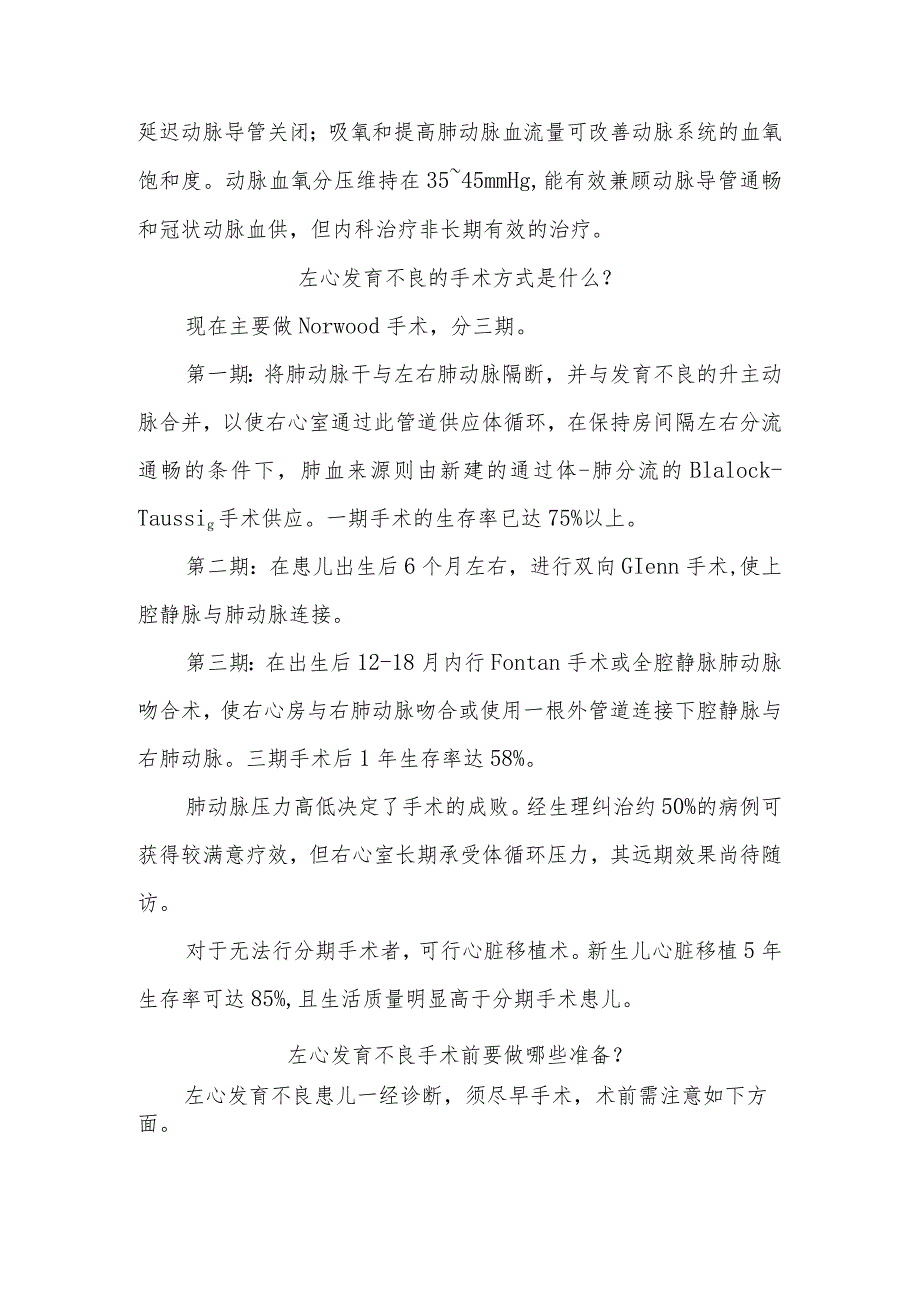 延迟动脉导管关闭；吸氧和提高肺动脉血流量可改善动脉系统的血氧
饱和度。动脉血氧分压维持在35~45mmHg,能有效兼顾动脉导管通畅
和冠状动脉血供，但内科治疗非长期有效的治疗。
左心发育不良的手术方式是什么？
现在主要做Norwood手术，分三期。
第一期：将肺动脉干与左右肺动脉隔断，并与发育不良的升主动
脉合并，以使右心室通过此管道供应体循环，在保持房间隔左右分流
通畅的条件下，肺血来源则由新建的通过体-肺分流的Blalock-
Taussig手术供应。一期手术的生存率已达75%以上。
第二期：在患儿出生后6个月左右，进行双向GIenn手术,使上
腔静脉与肺动脉连接。
第三期：在出生后12-18月内行Fontan手术或全腔静脉肺动脉
吻合术，使右心房与右肺动脉吻合或使用一根外管道连接下腔静脉与
右肺动脉。三期手术后1年生存率达58%。
肺动脉压力高低决定了手术的成败。经生理纠治约50%的病例可
获得较满意疗效，但右心室长期承受体循环压力，其远期效果尚待随
访。
对于无法行分期手术者，可行心脏移植术。新生儿心脏移植5年
生存率可达85%,且生活质量明显高于分期手术患儿。
左心发育不良手术前要做哪些准备？
左心发育不良患儿一经诊断，须尽早手术，术前需注意如下方
面。